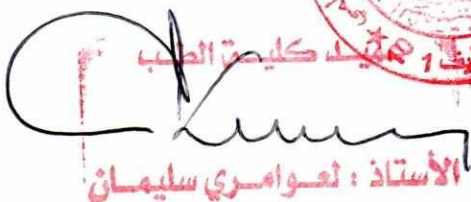 عميد كليـة الطب
الأستاذ : لعـوامـري سليمـان